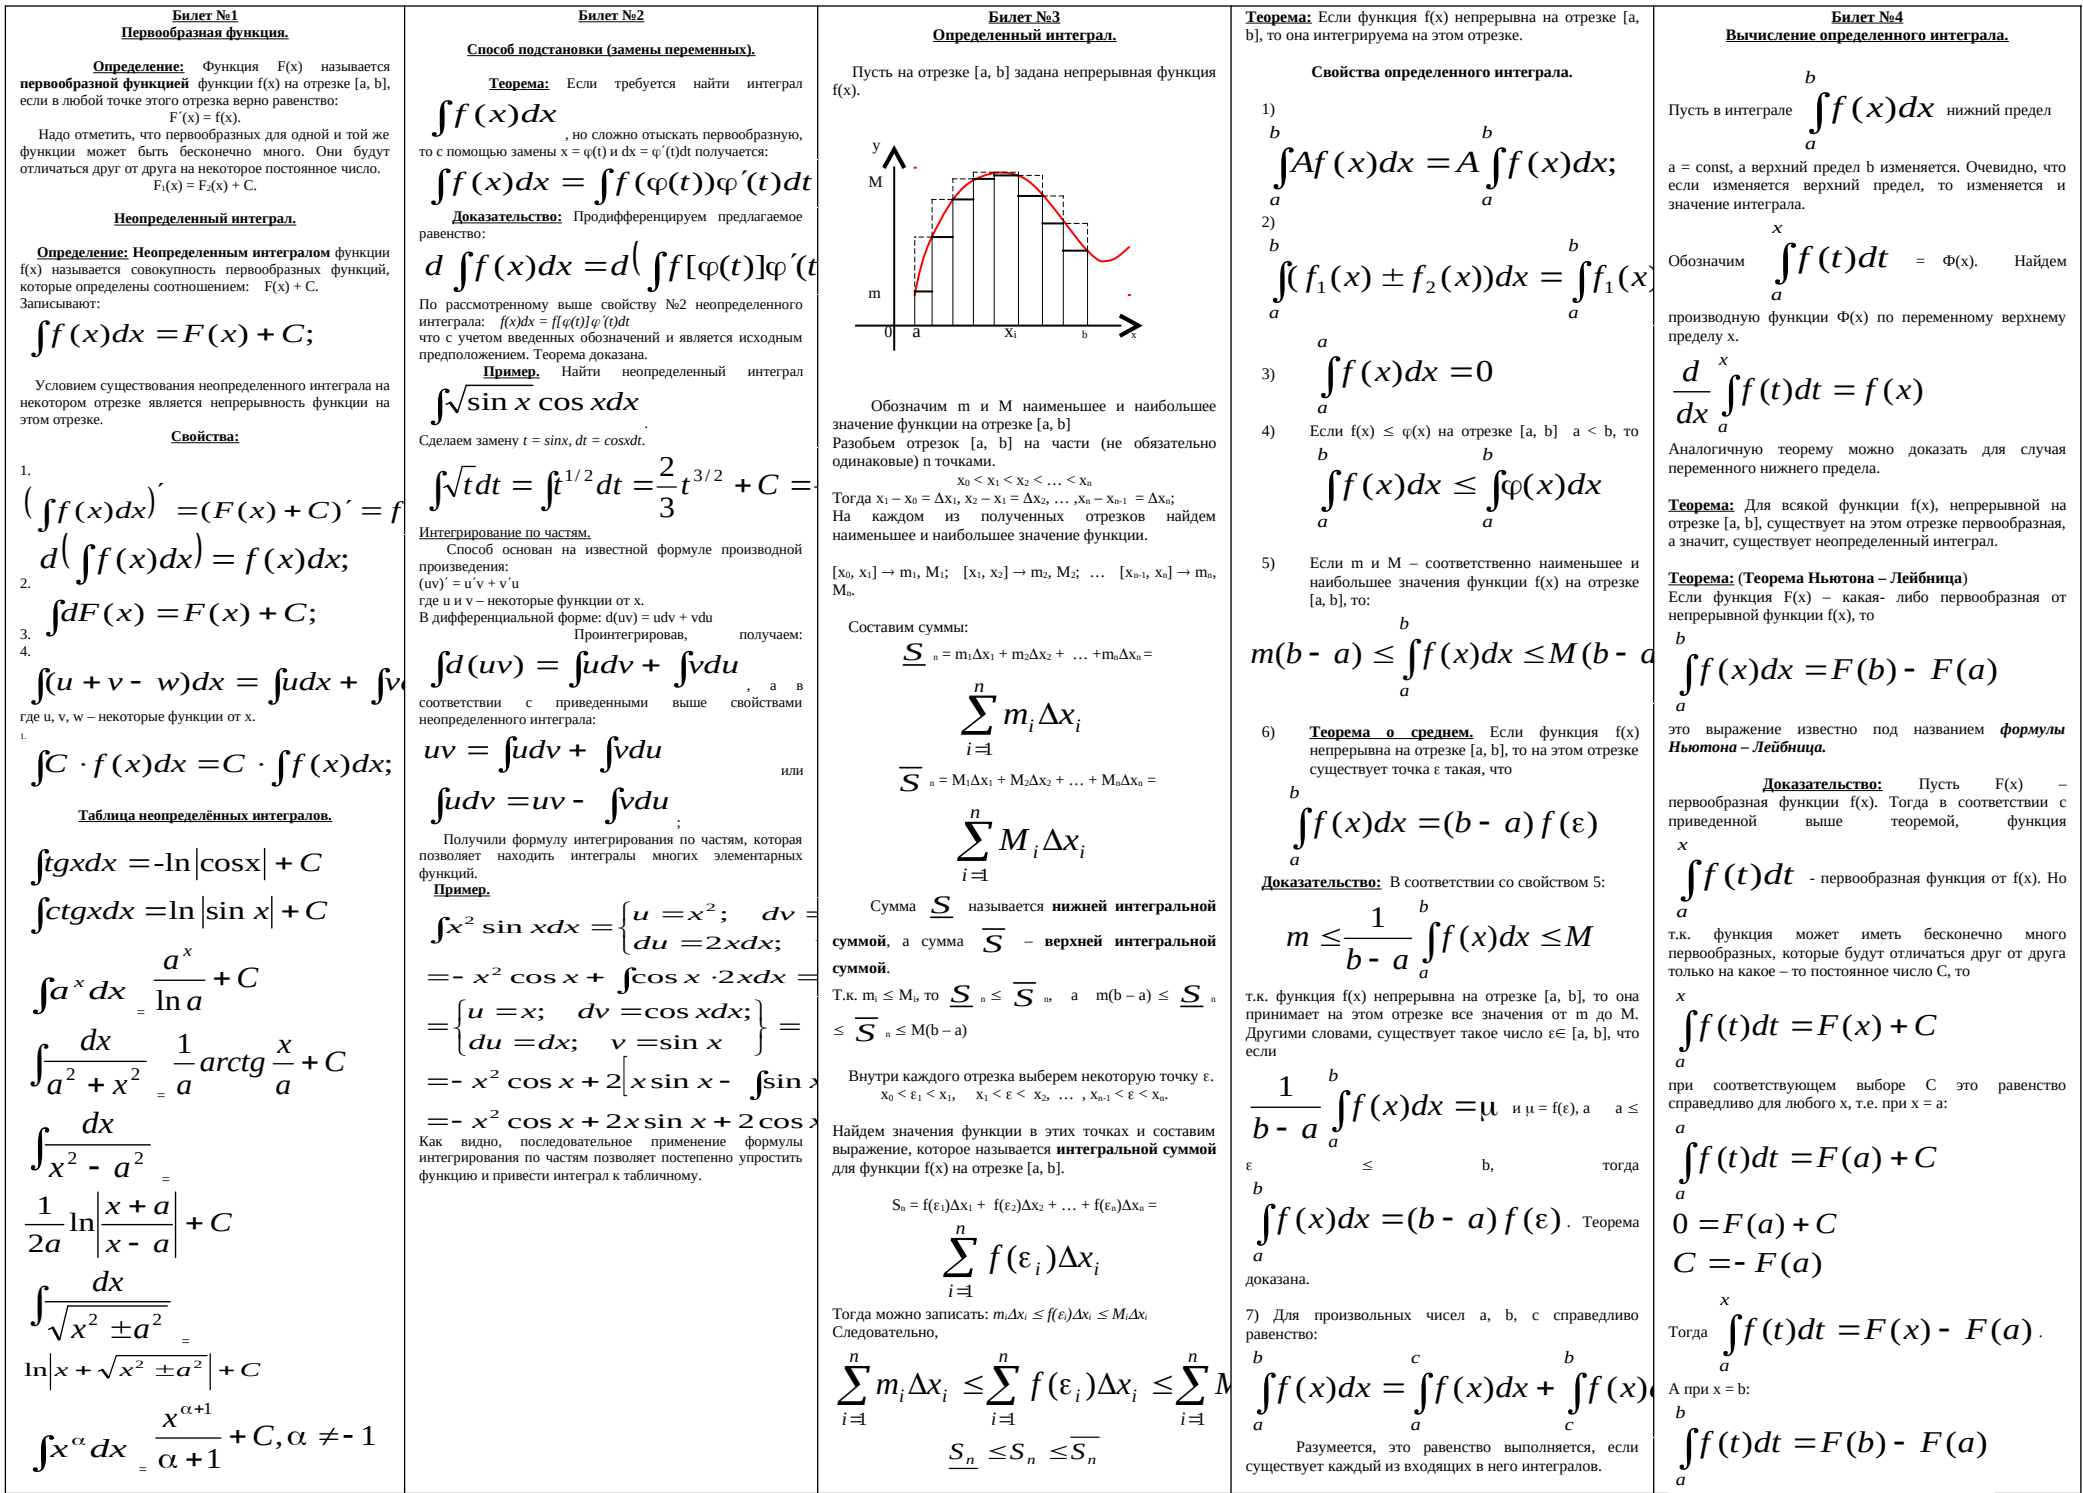 Билет №1
Первообразная функция.
Определение: Функция F(x) называется
первообразной функцией функции f(x) на отрезке [a, b],
если в любой точке этого отрезка верно равенство:
F´(x) = f(x).
Надо отметить, что первообразных для одной и той же
функции может быть бесконечно много. Они будут
отличаться друг от друга на некоторое постоянное число.
F₁(x) = F₂(x) + C.
Неопределенный интеграл.
Определение: Неопределенным интегралом функции
f(x) называется совокупность первообразных функций,
которые определены соотношением: F(x) + C.
Записывают:
∫f(x)dx = F(x) + C;
Условием существования неопределенного интеграла на
некотором отрезке является непрерывность функции на
этом отрезке.
Свойства:
1.
(∫f(x)dx)´ = (F(x) + C)´ = f
d(∫f(x)dx) = f(x)dx;
2.
∫dF(x) = F(x) + C;
3.
4.
∫(u + v - w)dx = ∫udx + ∫v
где u, v, w – некоторые функции от х.
1.
∫C · f(x)dx = C · ∫f(x)dx;
Таблица неопределённых интегралов.
∫tgxdx = -ln|cosx| + C
∫ctgxdx = ln|sin x| + C
∫aˣdx = aˣ/ln a + C
∫dx/(a² + x²) = 1/a arctg x/a + C
∫dx/(x² - a²) =
1/2a ln|(x + a)/(x - a)| + C
∫dx/√(x² ± a²) =
ln|x + √(x² ± a²)| + C
∫x^α dx = x^(α+1)/(α+1) + C, α ≠ -1
Билет №2
Способ подстановки (замены переменных).
Теорема: Если требуется найти интеграл
∫f(x)dx , но сложно отыскать первообразную,
то с помощью замены x = φ(t) и dx = φ´(t)dt получается:
∫f(x)dx = ∫f(φ(t))φ´(t)dt
Доказательство: Продифференцируем предлагаемое
равенство:
d∫f(x)dx = d(∫f[φ(t)]φ´(t
По рассмотренному выше свойству №2 неопределенного
интеграла: f(x)dx = f[φ(t)]φ´(t)dt
что с учетом введенных обозначений и является исходным
предположением. Теорема доказана.
Пример. Найти неопределенный интеграл
∫√sin x cos xdx .
Сделаем замену t = sinx, dt = cosxdt.
∫√t dt = ∫t^(1/2) dt = 2/3 t^(3/2) + C =
Интегрирование по частям.
Способ основан на известной формуле производной
произведения:
(uv)´ = u´v + v´u
где u и v – некоторые функции от х.
В дифференциальной форме: d(uv) = udv + vdu
Проинтегрировав, получаем:
∫d(uv) = ∫udv + ∫vdu , а в
соответствии с приведенными выше свойствами
неопределенного интеграла:
uv = ∫udv + ∫vdu или
∫udv = uv - ∫vdu ;
Получили формулу интегрирования по частям, которая
позволяет находить интегралы многих элементарных
функций.
Пример.
∫x² sin xdx = {u = x²; dv =
du = 2xdx;
= -x² cos x + ∫cos x · 2xdx =
= {u = x; dv = cos xdx;
du = dx; v = sin x} =
= -x² cos x + 2[x sin x - ∫sin x
= -x² cos x + 2x sin x + 2 cos x
Как видно, последовательное применение формулы
интегрирования по частям позволяет постепенно упростить
функцию и привести интеграл к табличному.
Билет №3
Определенный интеграл.
Пусть на отрезке [a, b] задана непрерывная функция
f(x).
y
M
m
0 a xᵢ b x
Обозначим m и M наименьшее и наибольшее
значение функции на отрезке [a, b]
Разобьем отрезок [a, b] на части (не обязательно
одинаковые) n точками.
x₀ < x₁ < x₂ < … < xₙ
Тогда x₁ – x₀ = Δx₁, x₂ – x₁ = Δx₂, … ,xₙ – xₙ₋₁ = Δxₙ;
На каждом из полученных отрезков найдем
наименьшее и наибольшее значение функции.
[x₀, x₁] → m₁, M₁; [x₁, x₂] → m₂, M₂; … [xₙ₋₁, xₙ] → mₙ,
Mₙ.
Составим суммы:
S̲ ₙ = m₁Δx₁ + m₂Δx₂ + … +mₙΔxₙ =
∑ⁿᵢ₌₁ mᵢΔxᵢ
S̅ ₙ = M₁Δx₁ + M₂Δx₂ + … + MₙΔxₙ =
∑ⁿᵢ₌₁ MᵢΔxᵢ
Сумма S̲ называется нижней интегральной
суммой, а сумма S̅ – верхней интегральной
суммой.
Т.к. mᵢ ≤ Mᵢ, то S̲ ₙ ≤ S̅ ₙ, а m(b – a) ≤ S̲ ₙ
≤ S̅ ₙ ≤ M(b – a)
Внутри каждого отрезка выберем некоторую точку ε.
x₀ < ε₁ < x₁, x₁ < ε < x₂, … , xₙ₋₁ < ε < xₙ.
Найдем значения функции в этих точках и составим
выражение, которое называется интегральной суммой
для функции f(x) на отрезке [a, b].
Sₙ = f(ε₁)Δx₁ + f(ε₂)Δx₂ + … + f(εₙ)Δxₙ =
∑ⁿᵢ₌₁ f(εᵢ)Δxᵢ
Тогда можно записать: mᵢΔxᵢ ≤ f(εᵢ)Δxᵢ ≤ MᵢΔxᵢ
Следовательно,
∑ⁿᵢ₌₁ mᵢΔxᵢ ≤ ∑ⁿᵢ₌₁ f(εᵢ)Δxᵢ ≤ ∑ⁿᵢ₌₁ M
S̲ₙ ≤ Sₙ ≤ S̅ₙ
Теорема: Если функция f(x) непрерывна на отрезке [a,
b], то она интегрируема на этом отрезке.
Свойства определенного интеграла.
1)
∫ₐᵇ Af(x)dx = A∫ₐᵇ f(x)dx;
2)
∫ₐᵇ (f₁(x) ± f₂(x))dx = ∫ₐᵇ f₁(x)
3) ∫ₐᵃ f(x)dx = 0
4) Если f(x) ≤ φ(x) на отрезке [a, b] a < b, то
∫ₐᵇ f(x)dx ≤ ∫ₐᵇ φ(x)dx
5) Если m и M – соответственно наименьшее и
наибольшее значения функции f(x) на отрезке
[a, b], то:
m(b - a) ≤ ∫ₐᵇ f(x)dx ≤ M(b - a
6) Теорема о среднем. Если функция f(x)
непрерывна на отрезке [a, b], то на этом отрезке
существует точка ε такая, что
∫ₐᵇ f(x)dx = (b - a)f(ε)
Доказательство: В соответствии со свойством 5:
m ≤ 1/(b - a) ∫ₐᵇ f(x)dx ≤ M
т.к. функция f(x) непрерывна на отрезке [a, b], то она
принимает на этом отрезке все значения от m до M.
Другими словами, существует такое число ε∈ [a, b], что
если
1/(b - a) ∫ₐᵇ f(x)dx = μ и μ = f(ε), а a ≤
ε ≤ b, тогда
∫ₐᵇ f(x)dx = (b - a)f(ε) . Теорема
доказана.
7) Для произвольных чисел a, b, c справедливо
равенство:
∫ₐᵇ f(x)dx = ∫ₐᶜ f(x)dx + ∫꜀ᵇ f(x)
Разумеется, это равенство выполняется, если
существует каждый из входящих в него интегралов.
Билет №4
Вычисление определенного интеграла.
Пусть в интеграле ∫ₐᵇ f(x)dx нижний предел
a = const, а верхний предел b изменяется. Очевидно, что
если изменяется верхний предел, то изменяется и
значение интеграла.
Обозначим ∫ₐˣ f(t)dt = Φ(x). Найдем
производную функции Φ(x) по переменному верхнему
пределу х.
d/dx ∫ₐˣ f(t)dt = f(x)
Аналогичную теорему можно доказать для случая
переменного нижнего предела.
Теорема: Для всякой функции f(x), непрерывной на
отрезке [a, b], существует на этом отрезке первообразная,
а значит, существует неопределенный интеграл.
Теорема: (Теорема Ньютона – Лейбница)
Если функция F(x) – какая- либо первообразная от
непрерывной функции f(x), то
∫ₐᵇ f(x)dx = F(b) - F(a)
это выражение известно под названием формулы
Ньютона – Лейбница.
Доказательство: Пусть F(x) –
первообразная функции f(x). Тогда в соответствии с
приведенной выше теоремой, функция
∫ₐˣ f(t)dt - первообразная функция от f(x). Но
т.к. функция может иметь бесконечно много
первообразных, которые будут отличаться друг от друга
только на какое – то постоянное число C, то
∫ₐˣ f(t)dt = F(x) + C
при соответствующем выборе С это равенство
справедливо для любого х, т.е. при х = а:
∫ₐᵃ f(t)dt = F(a) + C
0 = F(a) + C
C = -F(a)
Тогда ∫ₐˣ f(t)dt = F(x) - F(a) .
А при х = b:
∫ₐᵇ f(t)dt = F(b) - F(a)